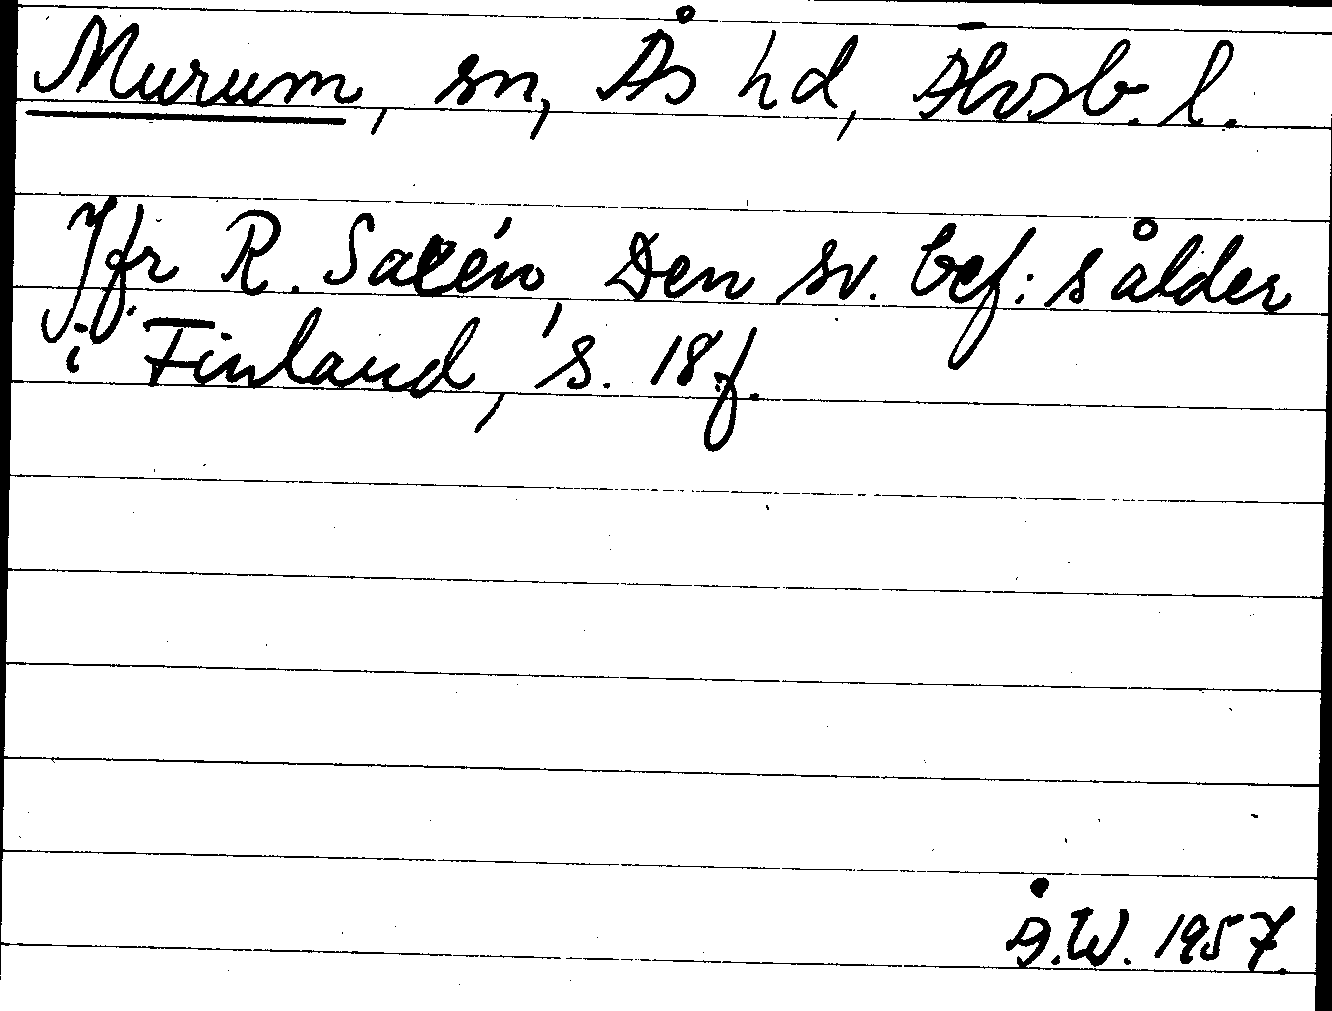 Murum, sn, Ås hd, Älvsb. l.
Jfr R. Saxén, Den sv. bef:s ålder
i Finland, s. 18 f.
Å.W. 1957.